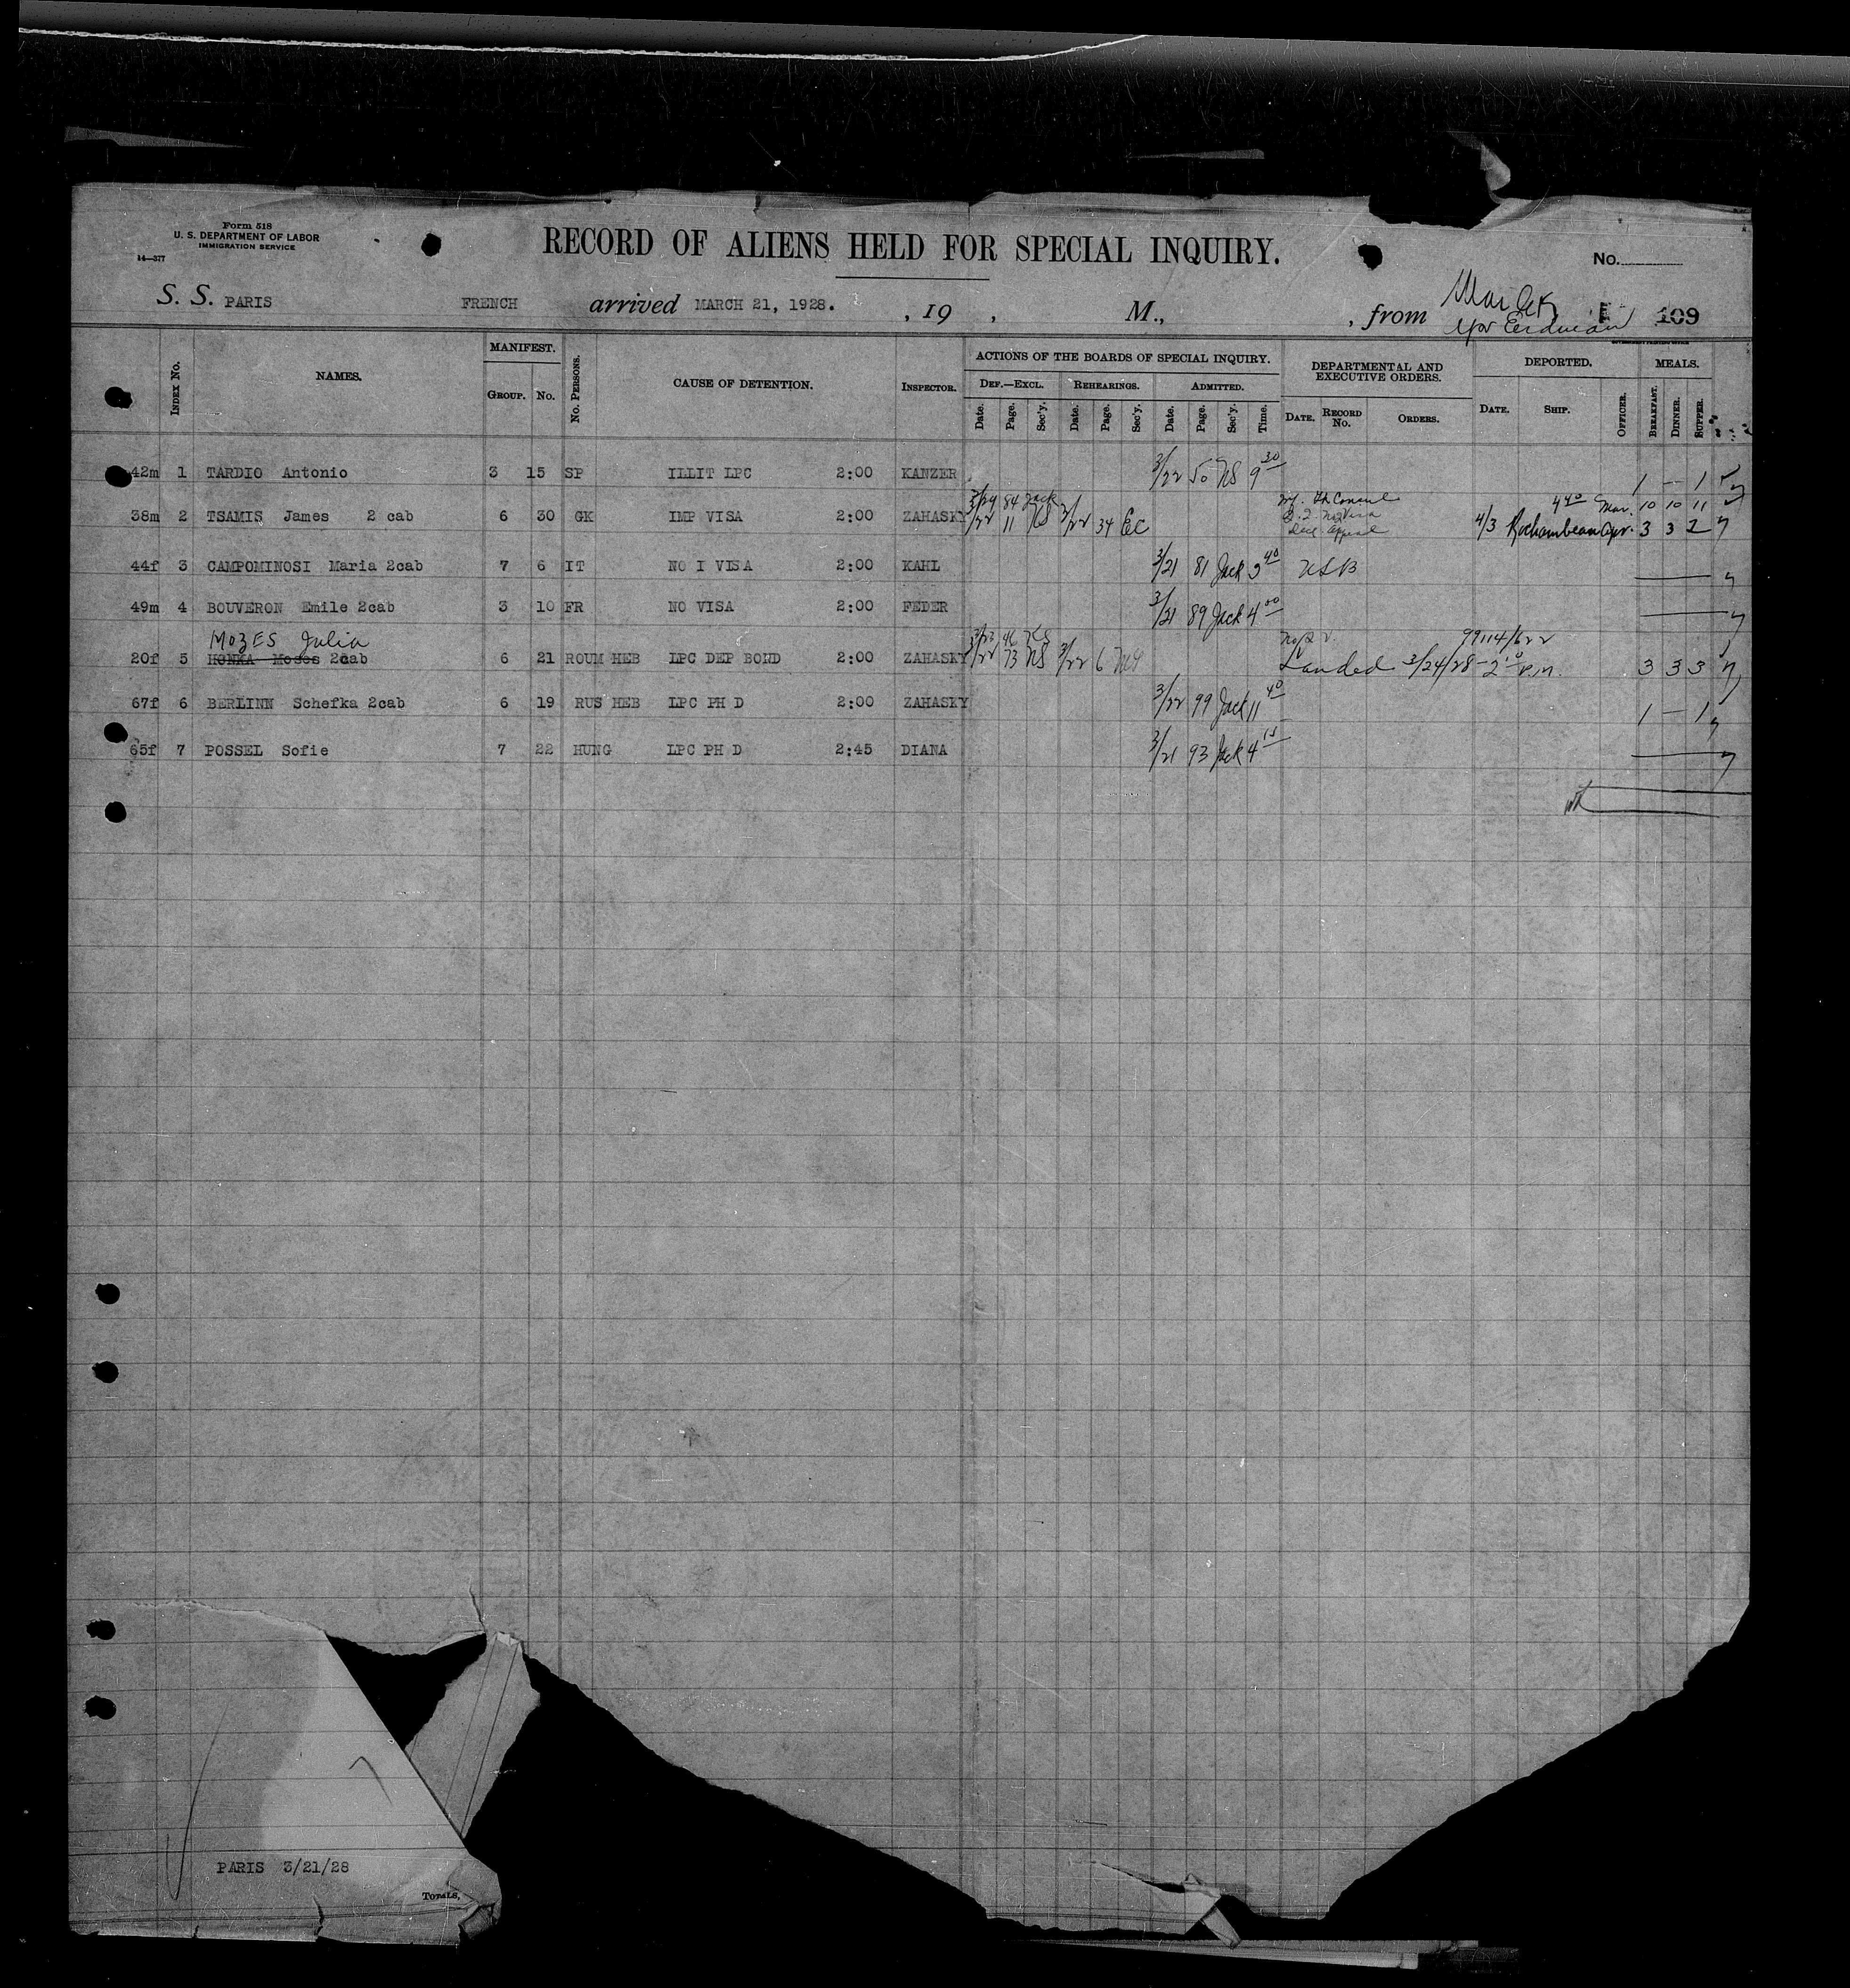 Form 518
U. S. DEPARTMENT OF LABOR
IMMIGRATION SERVICE
14—377
RECORD OF ALIENS HELD FOR SPECIAL INQUIRY.
No.
S. S. PARIS FRENCH arrived MARCH 21, 1928. , 19 , M., , from 109
INDEX No. NAMES. MANIFEST. GROUP. No. No. PERSONS. CAUSE OF DETENTION. INSPECTOR. ACTIONS OF THE BOARDS OF SPECIAL INQUIRY. DEF.—EXCL. Date. Page. Sec'y. REHEARINGS. Date. Page. Sec'y. ADMITTED. Date. Page. Sec'y. Time. DEPARTMENTAL AND EXECUTIVE ORDERS. DATE. RECORD No. ORDERS. DEPORTED. DATE. SHIP. OFFICER. MEALS. BREAKFAST. DINNER. SUPPER.
42m 1 TARDIO Antonio 3 15 SP ILLIT LPC 2:00 KANZER 3/22 50 NS 9 30 1 — 1
3/24 84 Jack Consul 4 40 Mar. 10 10 11
38m 2 TSAMIS James 2 cab 6 30 GK IMP VISA 2:00 ZAHASKY 3/22 11 3/22 34 EC No Visa Appeal 4/3 Rochambeau Apr. 3 3 2
44f 3 CAMPOMINOSI Maria 2cab 7 6 IT NO I VISA 2:00 KAHL 3/21 81 Jack 3 40
49m 4 BOUVERON Emile 2cab 3 10 FR NO VISA 2:00 FEDER 3/21 89 Jack 4 00
MOZES Julia 3/23 46 99114/622
20f 5 HONKA Moses 2cab 6 21 ROUM HEB LPC DEP BOND 2:00 ZAHASKY 3/22 73 NS 3/22 6 Landed 3/24/28 — 2 P.M. 3 3 3
67f 6 BERLINN Schefka 2cab 6 19 RUS HEB LPC PH D 2:00 ZAHASKY 3/22 99 Jack 11 40 1 — 1
65f 7 POSSEL Sofie 7 22 HUNG LPC PH D 2:45 DIANA 3/21 93 Jack 4 15
PARIS 3/21/28
TOTALS,